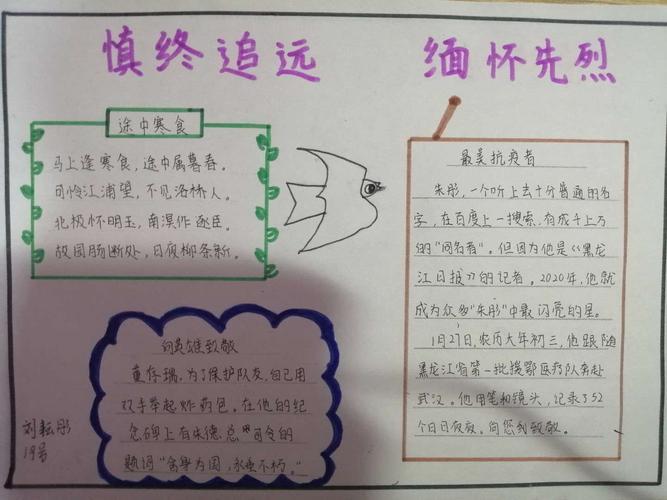 慎终追远 缅怀先烈
途中寒食
马上逢寒食，途中属暮春。
可怜江浦望，不见洛桥人。
北极怀明玉，南溟作逐臣。
故园肠断处，日夜柳条新。
最美抗疫者
朱彤，一个听上去十分普通的名
字，在百度上一搜索，有成千上万
的“同名者”。但因为他是《黑龙
江日报》的记者，2020年，他就
成为众多“朱彤”中最闪亮的星。
1月27日，农历大年初三，他跟随
黑龙江省第一批援鄂医疗队奔赴
武汉。他用笔和镜头，记录了52
个日日夜夜。向您致敬。
向英雄致敬
董存瑞，为了保护队友，自己用
双手举起炸药包。在他的纪
念碑上有朱德总司令的
题词“舍身为国，永垂不朽。”
刘耘彤
19号